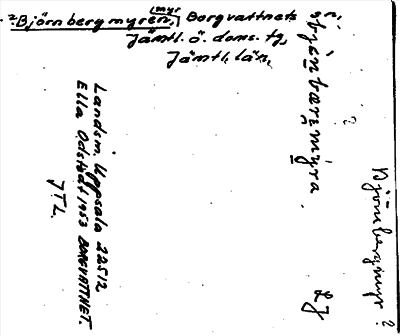 ²Björnbergmyren, (myr) Borgvattnets sn,
Jämtl. ö. doms. tg,
Jämtl. län,
Landsm. Uppsala 22512
Ella Odstedt 1953 BORGVATTNET.
JTL.
Björnbergmyr ?
LJ